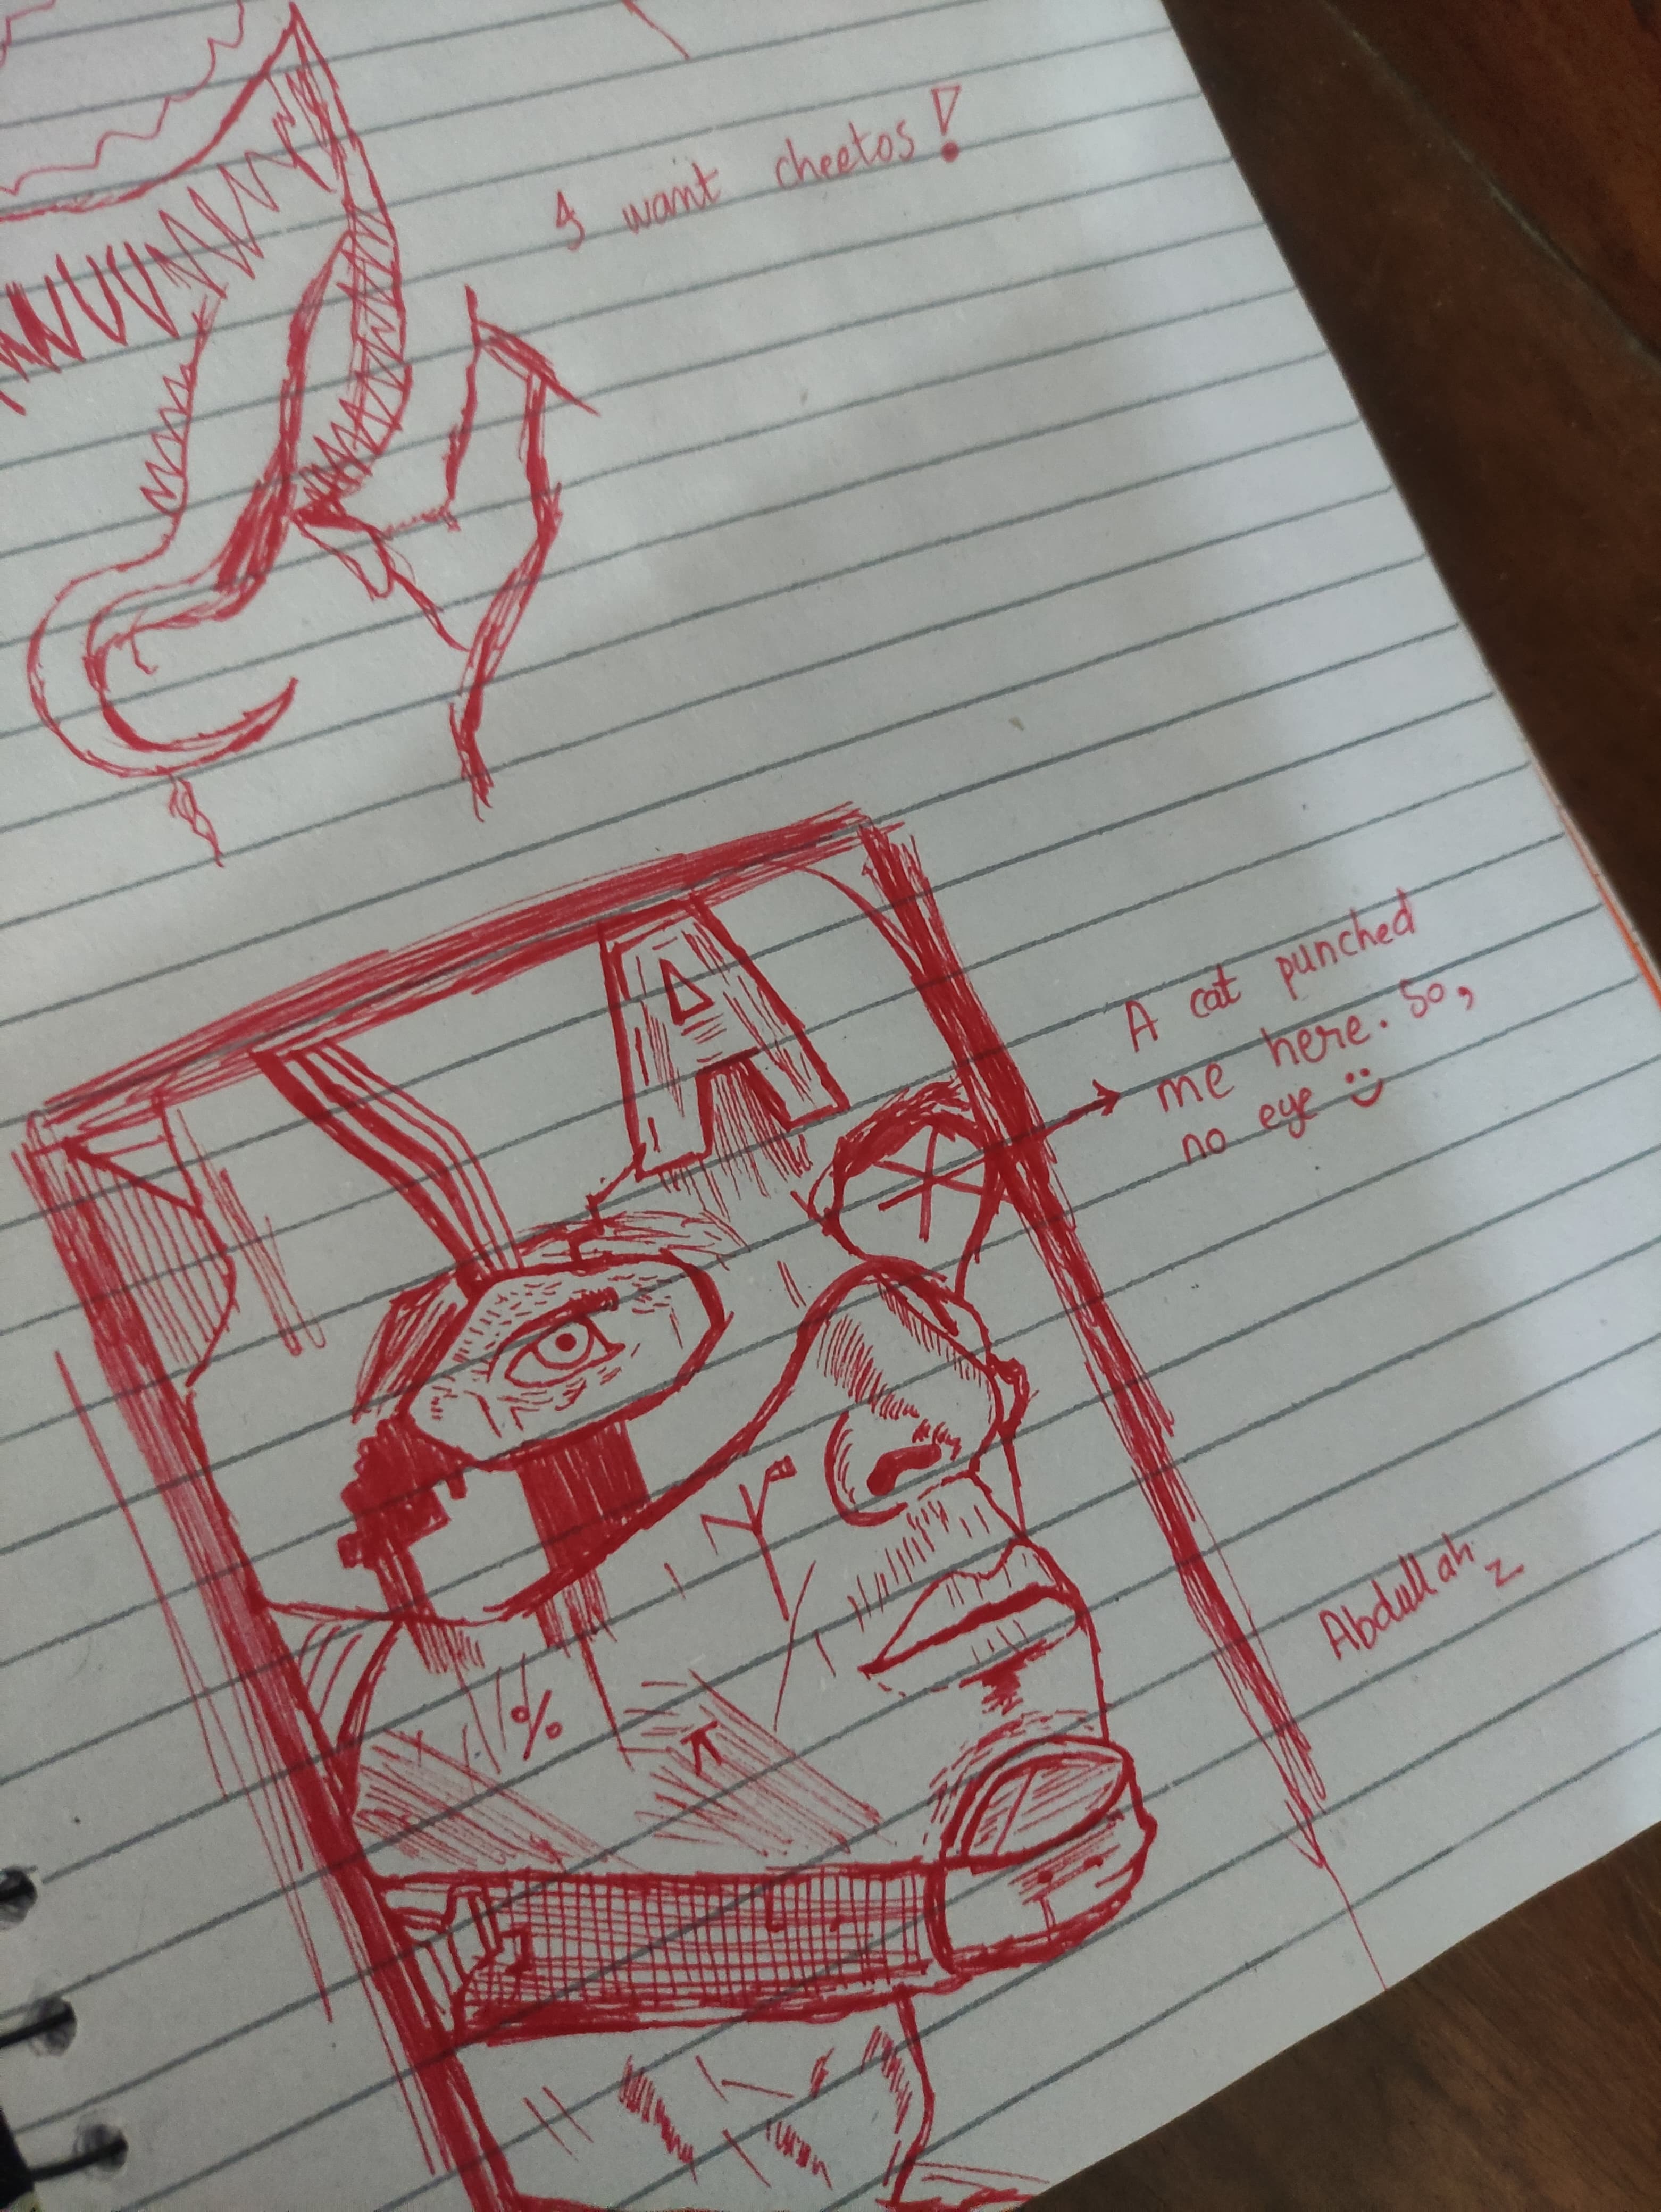 I want cheetos!
A
A cat punched
me here. So,
no eye :)
%
Abdullah